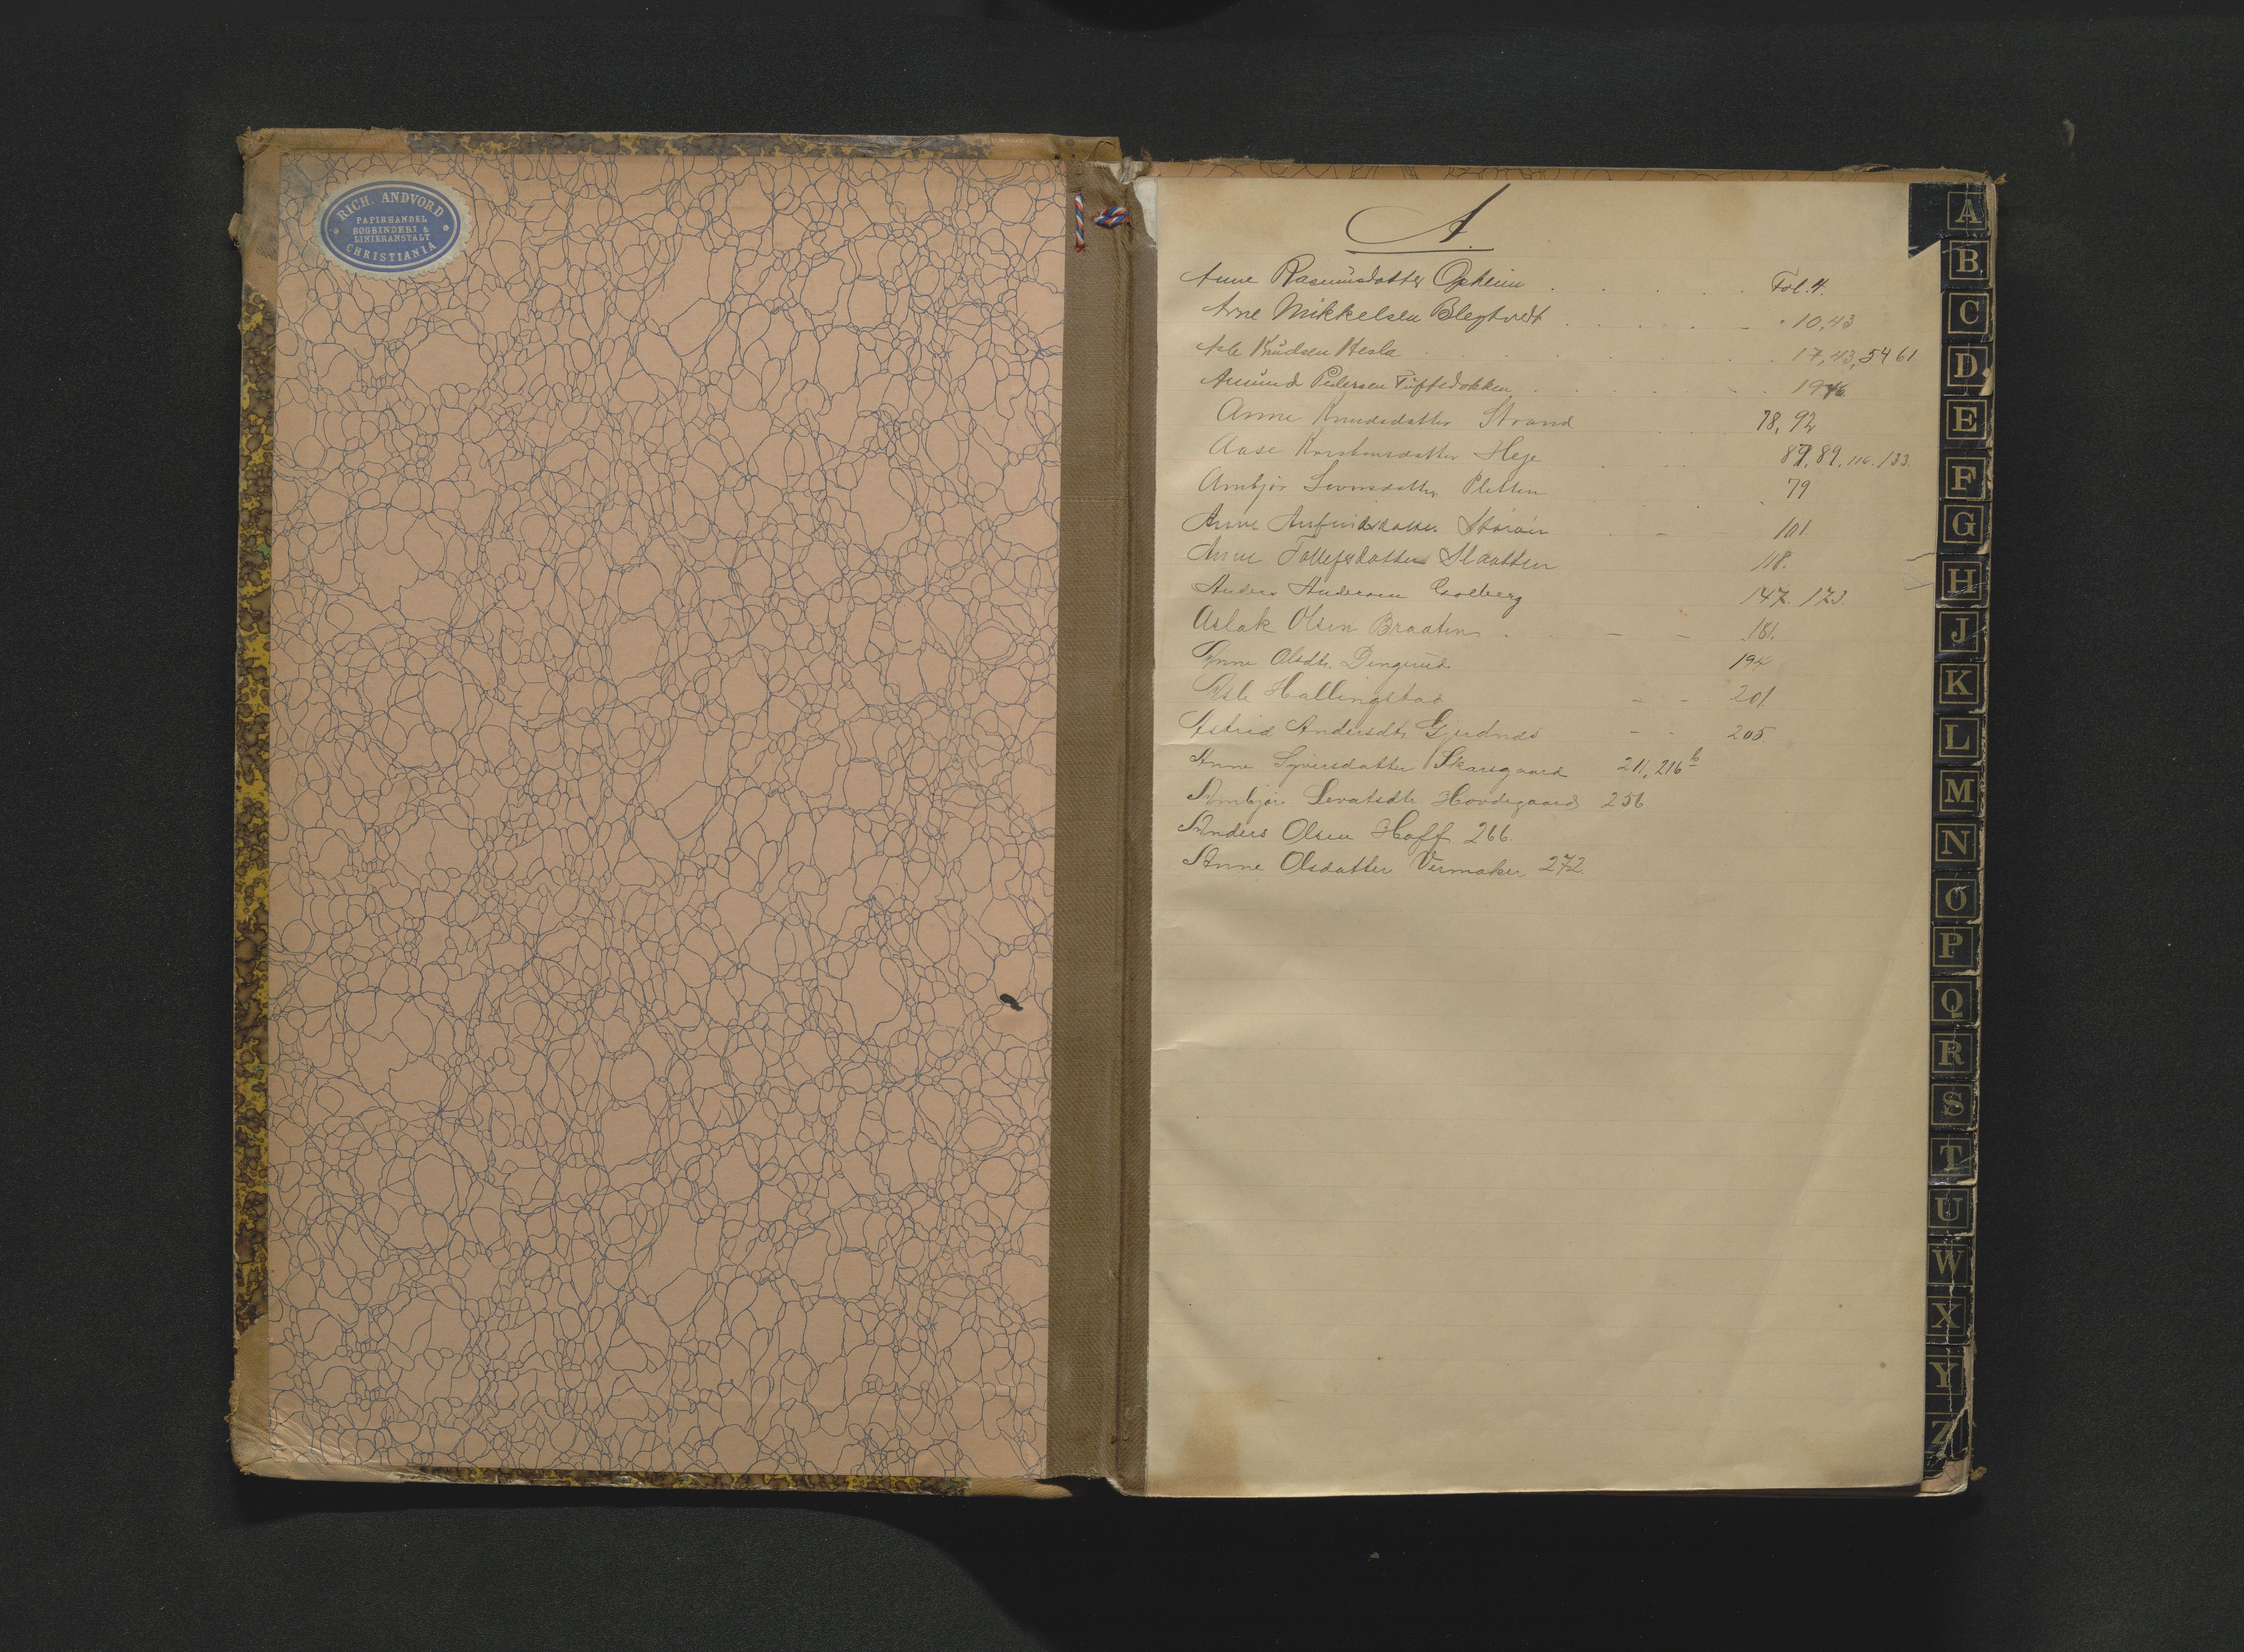 RICH. ANDVORD
PAPIRHANDEL
BOGBINDERI &
LINIERANSTALT
CHRISTIANIA
A.
Anne Rasmusdatter Opheim Fol. 4.
Arne Mikkelsen Blegtvedt 10, 43
Asle Knudsen Hesla 17, 43, 54 61
Amund Pedersen Tuftedokken
Anne Knudsdatter Strand 78, 92
Aase Kristensdatter Heje 89, 116. 133.
Ambjør Pletten 79
Anne 101.
Anne Tollefsdatter Slaatten 118.
Anders Andersen Golberg 147. 173.
Aslak Olsen Braaten 181.
Anne Olsdtr. Dengerud 194
Asle Hallingstad 201.
Astrid Andersdtr. Gjerdnes 205
Anne Syversdatter Skarsgaard 211, 216 b
Ambjør Sevatsdtr. Hovdegaard 256
Anders Olsen Hoff 266.
Anne Olsdatter Vermaker, 272.
A
B
C
D
E
F
G
H
J
K
L
M
N
O
P
Q
R
S
T
U
W
X
Y
Z